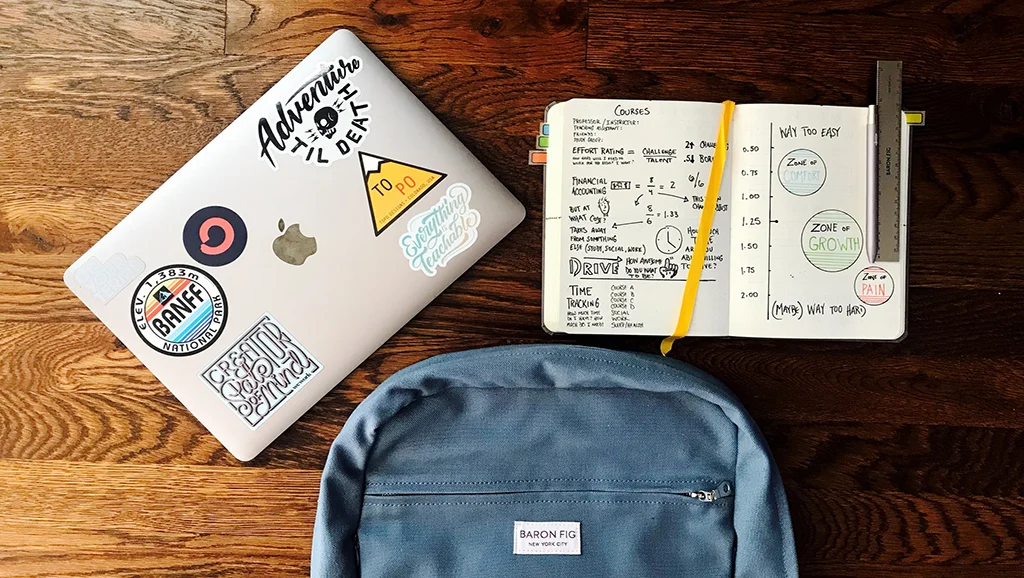 Adventure
TIL DEATH
TO PO
TOPO DESIGNS · COLORADO, USA
Everything
is
Teachable
ELEV. 1,383m
BANFF
NATIONAL PARK
CREATOR
is a State
OF Mind
COURSES
PROFESSOR / INSTRUCTOR:
TEACHING ASSISTANT:
FRIENDS:
STUDY GROUP:
EFFORT RATING = CHALLENGE
TALENT
2+ CHALL
.5+ BOR
FINANCIAL
ACCOUNTING
= 8/4 = 2
6/6
BUT AT
WHAT COST?
8/6 = 1.33
TAKES AWAY
FROM SOMETHING
ELSE (STUDY, SOCIAL, WORK)
DRIVE
HOW AWESOME
DO YOU WANT
TO BE?
TIME
TRACKING
HOW MUCH TIME
DO I HAVE? HOW
MUCH DO I NEED?
COURSE A
COURSE B
COURSE C
COURSE D
SOCIAL
WORK
SLEEP/HEALTH
WAY TOO EASY
0.50
0.75
1.00
1.25
1.50
1.75
2.00
ZONE OF
COMFORT
ZONE OF
GROWTH
ZONE OF
PAIN
(MAYBE) WAY TOO HARD
BARON FIG
BARON FIG
NEW YORK CITY